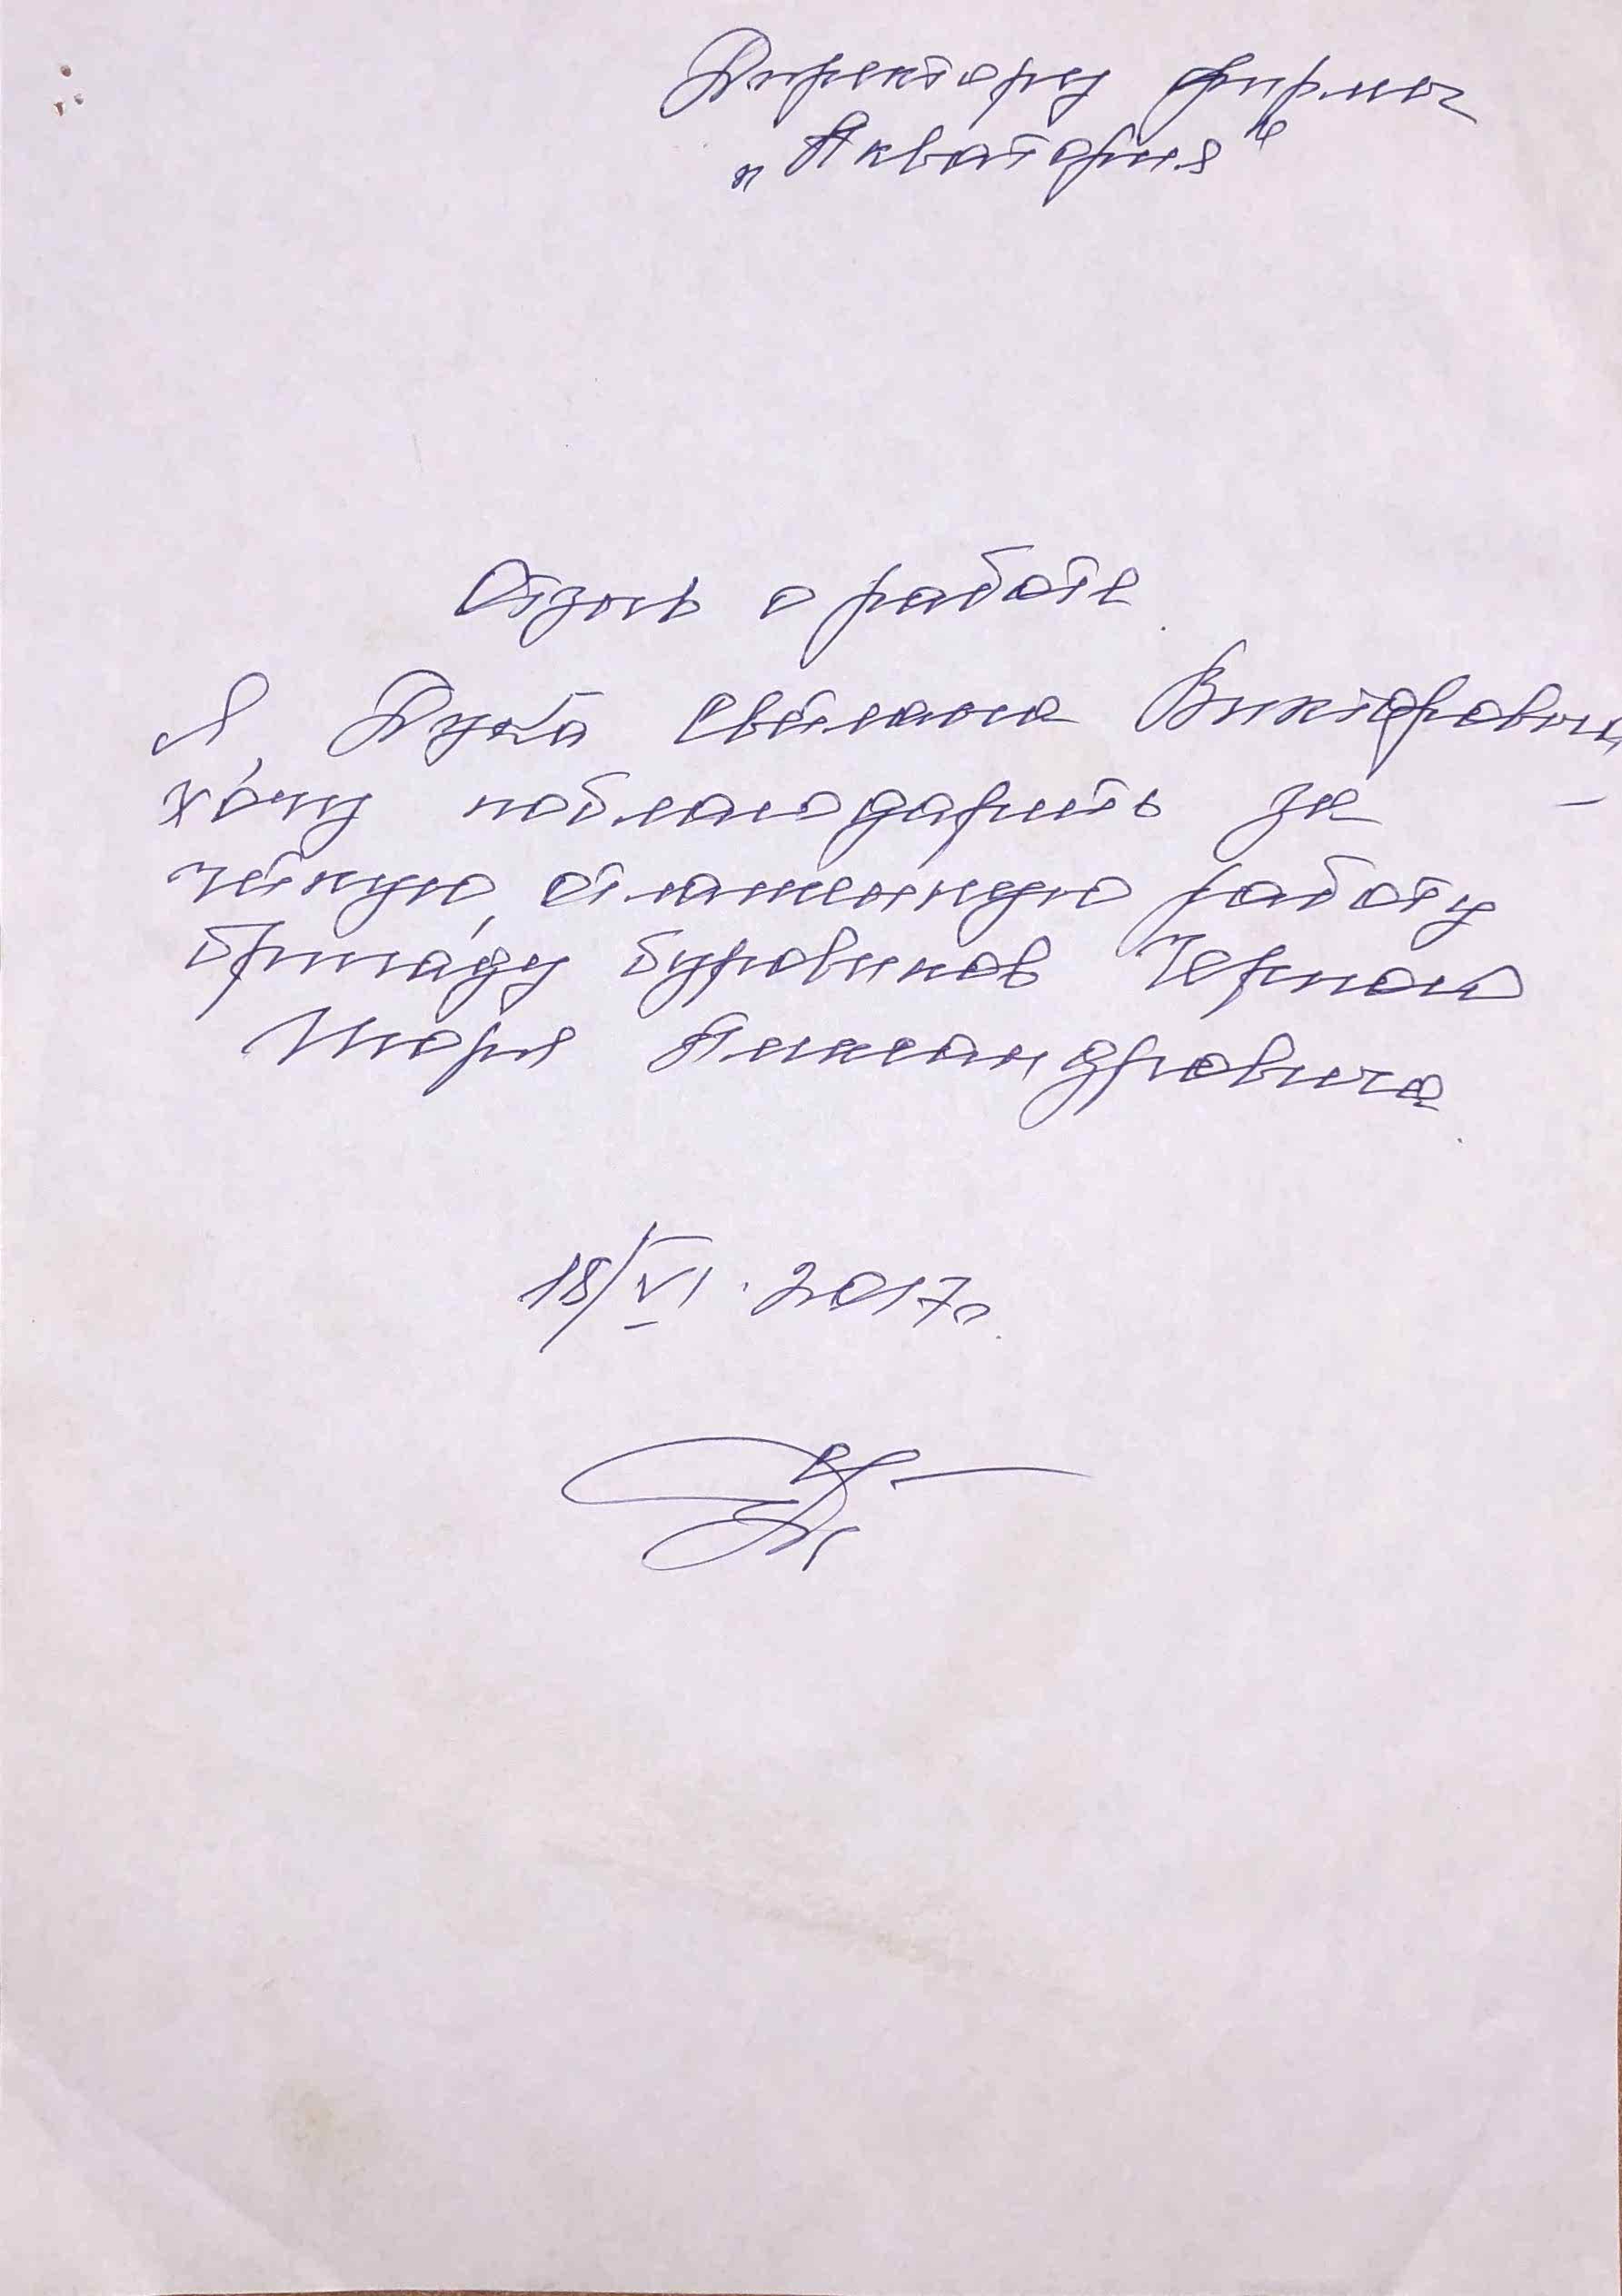 Директору фирмы
„Акватория“
Отзыв о работе.
Я, Дуб Светлана Викторовна
хочу поблагодарить за
четкую, отлаженную работу
бригаду буровиков
Игоря Александровича.
18/VI. 2017г.